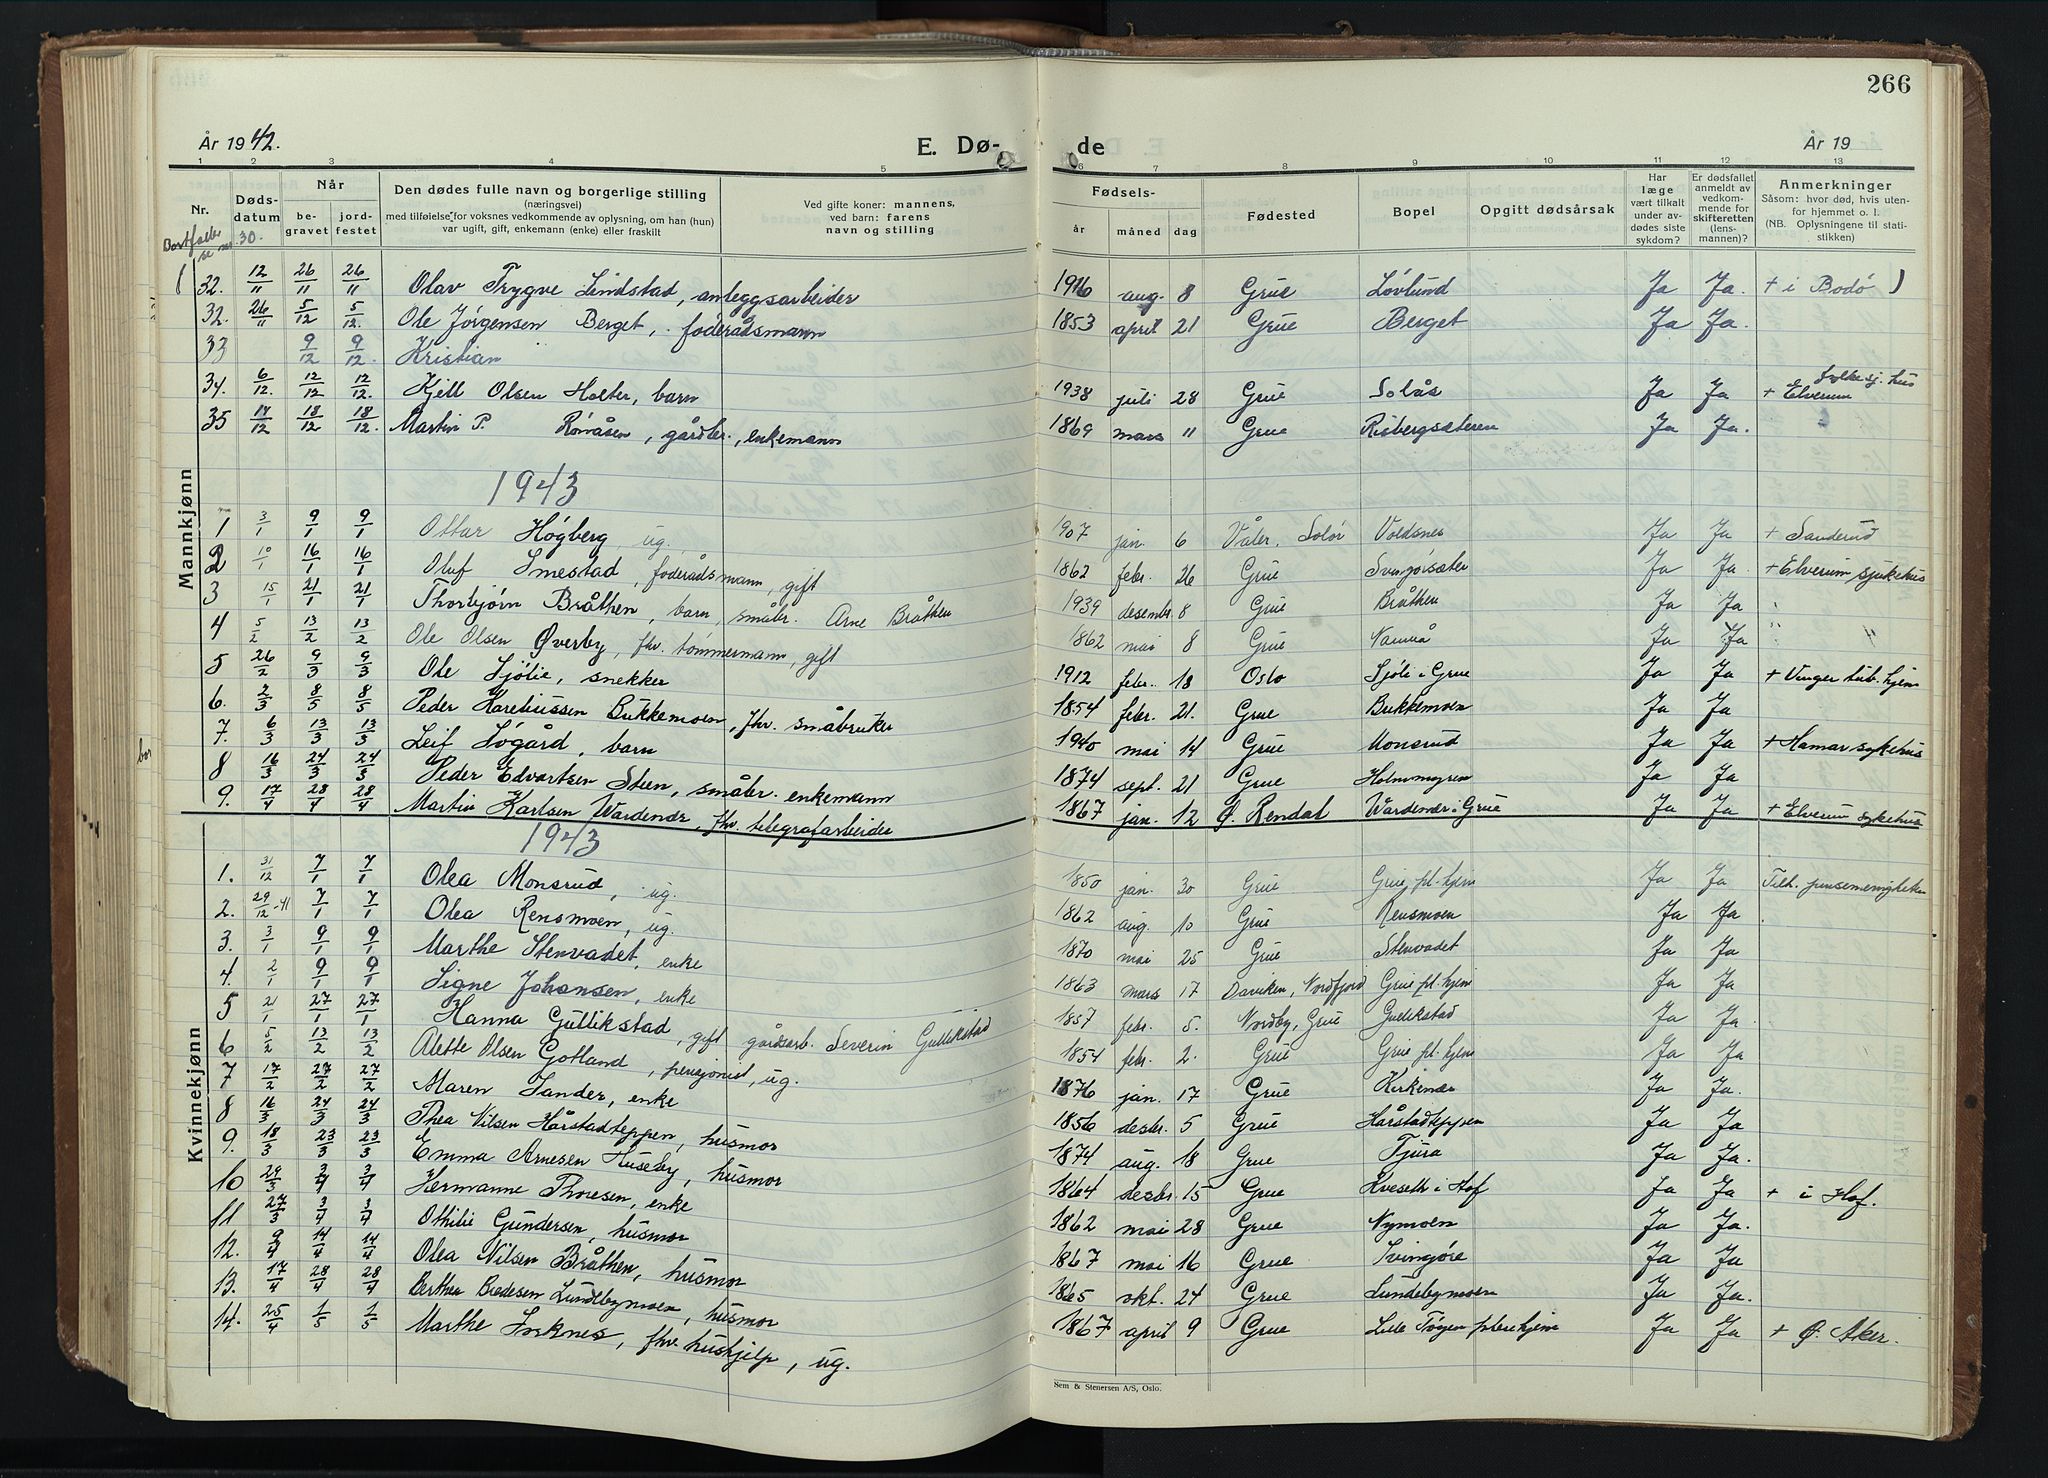 266
År 1942.
E. Dø-
de
År 19
1 2 3 4 5 6 7 8 9 10 11 12 13
Nr.
Døds-
datum
Når
be-
gravet
jord-
festet
Den dødes fulle navn og borgerlige stilling
(næringsvei)
med tilføielse for voksnes vedkommende av oplysning, om han (hun)
var ugift, gift, enkemann (enke) eller fraskilt
Ved gifte koner: mannens,
ved barn: farens
navn og stilling
Fødsels-
år måned dag
Fødested
Bopel
Opgitt dødsårsak
Har
læge
vært tilkalt
under av-
dødes siste
sykdom?
Er dødsfallet
anmeldt av
vedkom-
mende for
skifteretten
(lens-
mannen)?
Anmerkninger
Såsom: hvor død, hvis uten-
for hjemmet o. l.
(NB. Oplysningene til stati-
stikken)
Bortfalbe se nr. 30.
Mannkjønn
( 32. 12/11 26/11 26/11 Olav Trygve Lindstad, anleggsarbeider 1916 aug. 8 Grue Løvlund Ja Ja. + i Bodø )
32. 26/11 5/12 5/12. Ole Jørgensen Berget, føderådsmann 1853 april 21 Grue Berget Ja Ja.
33 9/12 9/12. Kristian
34. 6/12. 12/12 12/12. Kjell Olsen Holter, barn 1938 juli 28 Grue Solås Ja Ja + Elverum fylkesj. hus
35 14/12 18/12 18/12. Martin P. Rønåsen, gårdbr., enkemann 1869 mars 11 Grue Risbergsæteren Ja Ja.
1943
1 3/1 9/1 9/1 Ottar Høgberg, ug. 1907 jan. 6 Våler, Solør Voldsnes Ja Ja + Sanderud
2 10/1 16/1 16/1 Oluf Smestad, føderådsmann, gift 1862 febr. 26 Grue Svingørsæter Ja Ja. + Elverum sjukehus
3 15/1 21/1 21/1 Thorbjørn Bråthen, barn, småbr. Arne Bråthen 1939 desembr. 8 Grue Bråthen Ja Ja "
4 5/2 13/2 13/2 Ole Olsen Øverby, fhv. tømmermann, gift 1862 mai 8 Grue Namnå Ja Ja "
5 26/2 9/3 9/3 Ole Sjølie, snekker 1912 febr. 18 Oslo Sjøli i Grue Ja Ja + Vinger tub. hjem
6. 2/3 8/5 8/5 Peder Kareliussen Bukkemoen, fhv. småbruker 1854 febr. 21. Grue Bukkemoen Ja Ja
7. 6/3 13/3 13/3 Leif Søgård, barn 1940 mai 14 Grue Monsrud Ja Ja + Hamar sykehus
8 16/3 24/3 24/3 Peder Edvartsen Steen, småbr. enkemann 1874 sept. 21 Grue Holmmyren Ja Ja
9. 17/4 28/4 28/4 Martin Karlsen Wardenær, fhv. telegrafarbeider 1867 jan. 12 Ø. Rendal Wardenær i Grue Ja Ja + Elverum sykehus
1943
Kvinnekjønn
1. 31/12 7/1 7/1 Olea Monsrud, ug. 1850 jan. 30 Grue Grue pl. hjem Ja Ja Tilh. pinsemenigheten
2. 29/12-41 7/1 7/1 Olea Rensmoen, ug. 1862 aug. 10 Grue Rensmoen Ja Ja
3. 3/1 9/1 9/1 Marthe Stenvadet, enke 1870 mai 25 Grue Stenvadet Ja Ja
4. 2/1 9/1 9/1 Signe Johansen, enke 1863 mars 17 Daviken, Nordfjord Grue pl. hjem Ja Ja
5 21/1 27/1 27/1 Hanna Gullikstad, gift gårdsarb. Severin Gullikstad 1857 febr. 5. Nordby, Grue Gullikstad Ja Ja.
6 5/2 13/2 13/2 Alette Olsen Gotland, pensjonist, ug. 1854 febr. 2. Grue Grue pl. hjem Ja Ja
7 17/2 27/2 27/2 Maren Sander, enke 1876 jan. 17 Grue Kirkenær Ja Ja.
8 16/3 24/3 24/3 Thea Nilsen Hårstadteppen, husmor 1856 desbr. 5 Grue Hårstadteppen Ja Ja
9. 18/3 23/3 23/3 Emma Arnesen Huseby, husmor 1874 aug. 18 Grue Tjura Ja Ja.
10 29/3 3/4 3/4 Hermanne Thoresen, enke 1864 desbr. 15 Grue Kveseth i Hof Ja Ja + i Hof.
11 27/3 3/4 3/4 Othilie Gundersen, husmor 1862 mai 28 Grue Nymoen Ja Ja.
12. 9/4 14/4 14/4 Olea Nilsen Bråthen, husmor 1867 mai 16 Grue Svingøre Ja Ja
13. 17/4 28/4 28/4 Berthea Bredesen Lundebymoen, husmor 1865 okt. 24 Grue Lundebymoen Ja Ja.
14. 25/4 1/5 1/5 Marthe Sorknes, fhv. hushjelp, ug. 1867 april 9 Grue Lille Tøgen pleiehjem Ja Ja + Ø. Aker.
Sem & Stenersen A/S, Oslo.